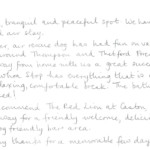 tranquil and peaceful spot. We ha
our stay.
our rescue dog has had fun
around Thompson and Thetford For
away from home with us a great
Stop has everything that is
relaxing, comfortable break. The bath
recommend The Red Lion at Caston
away for a friendly welcome, delic
dog friendly bar area.
thanks for a memorable few day